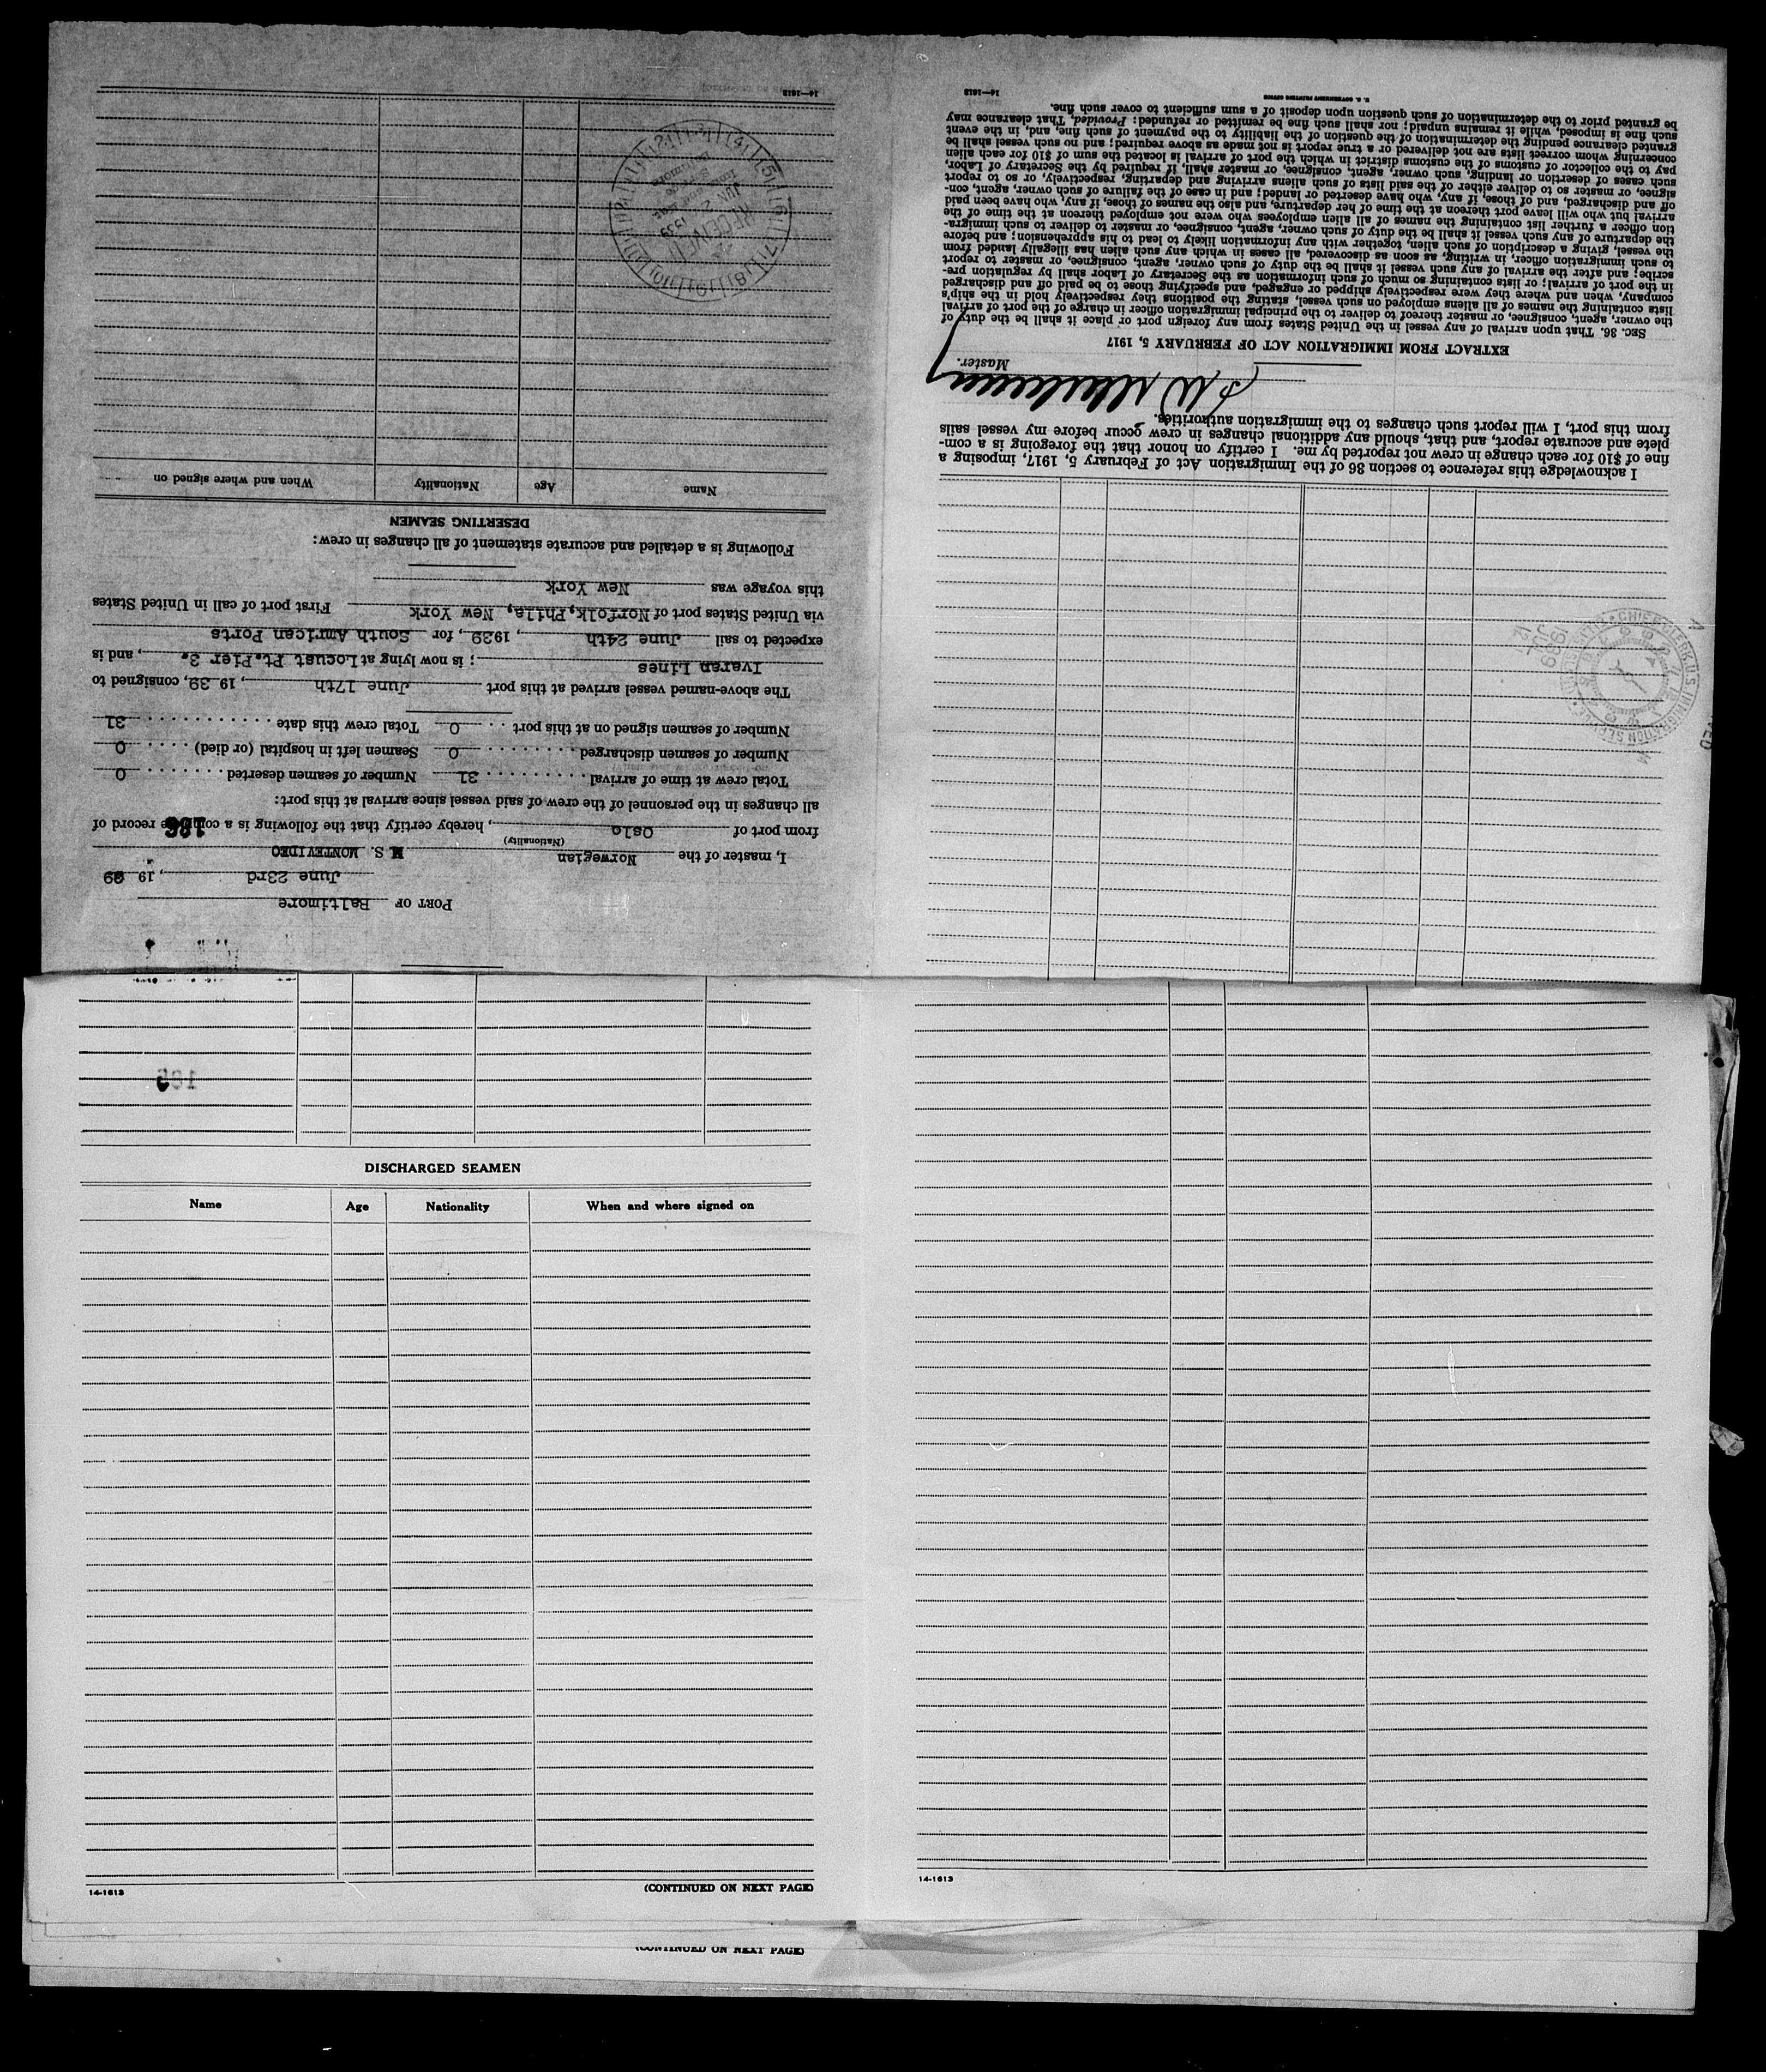 PORT OF Baltimore
June 23rd, 1939
I, master of the Norwegian M.S. MONTEVIDEO
(Nationality)
from port of Oslo, hereby certify that the following is a complete record of
all changes in the personnel of the crew of said vessel since arrival at this port:
Total crew at time of arrival 31 Number of seamen deserted 0
Number of seamen discharged 0 Seamen left in hospital (or died) 0
Number of seamen signed on at this port 0 Total crew this date 31
The above-named vessel arrived at this port June 17th, 1939, consigned to
Ivaran Lines; is now lying at Locust Pt. Pier 3., and is
expected to sail June 24th, 1939, for South American Ports
via United States port of Norfolk, Phila, New York First port of call in United States
this voyage was New York
Following is a detailed and accurate statement of all changes in crew:
DESERTING SEAMEN
Name Age Nationality When and where signed on
RECEIVED
JUN 2 1939
14—1613
I acknowledge this reference to section 36 of the Immigration Act of February 5, 1917, imposing a
fine of $10 for each change in crew not reported by me. I certify on honor that the foregoing is a com-
plete and accurate report, and that, should any additional changes in crew occur before my vessel sails
from this port, I will report such changes to the immigration authorities.
Master.
EXTRACT FROM IMMIGRATION ACT OF FEBRUARY 5, 1917
SEC. 36. That upon arrival of any vessel in the United States from any foreign port or place it shall be the duty of
the owner, agent, consignee, or master thereof to deliver to the principal immigration officer in charge of the port of arrival
lists containing the names of all aliens employed on such vessel, stating the positions they respectively hold in the ship's
company, when and where they were respectively shipped or engaged, and specifying those to be paid off and discharged
in the port of arrival; or lists containing so much of such information as the Secretary of Labor shall by regulation pre-
scribe; and after the arrival of any such vessel it shall be the duty of such owner, agent, consignee, or master to report
to such immigration officer, in writing, as soon as discovered, all cases in which any such alien has illegally landed from
the vessel, giving a description of such alien, together with any information likely to lead to his apprehension; and before
the departure of any such vessel it shall be the duty of such owner, agent, consignee, or master to deliver to such immigra-
tion officer a further list containing the names of all alien employees who were not employed thereon at the time of the
arrival but who will leave port thereon at the time of her departure, and also the names of those, if any, who have been paid
off and discharged, and of those, if any, who have deserted or landed; and in case of the failure of such owner, agent, con-
signee, or master so to deliver either of the said lists of such aliens arriving and departing, respectively, or so to report
such cases of desertion or landing, such owner, agent, consignee, or master shall, if required by the Secretary of Labor,
pay to the collector of customs of the customs district in which the port of arrival is located the sum of $10 for each alien
concerning whom correct lists are not delivered or a true report is not made as above required; and no such vessel shall be
granted clearance pending the determination of the question of the liability to the payment of such fine, and, in the event
such fine is imposed, while it remains unpaid; nor shall such fine be remitted or refunded: Provided, That clearance may
be granted prior to the determination of such question upon deposit of a sum sufficient to cover such fine.
U. S. GOVERNMENT PRINTING OFFICE 14—1613
CHIEF CLERK U.S. IMMIGRATION SERVICE
1939
DISCHARGED SEAMEN
Name Age Nationality When and where signed on
14-1613 (CONTINUED ON NEXT PAGE)
14-1613
(CONTINUED ON NEXT PAGE)